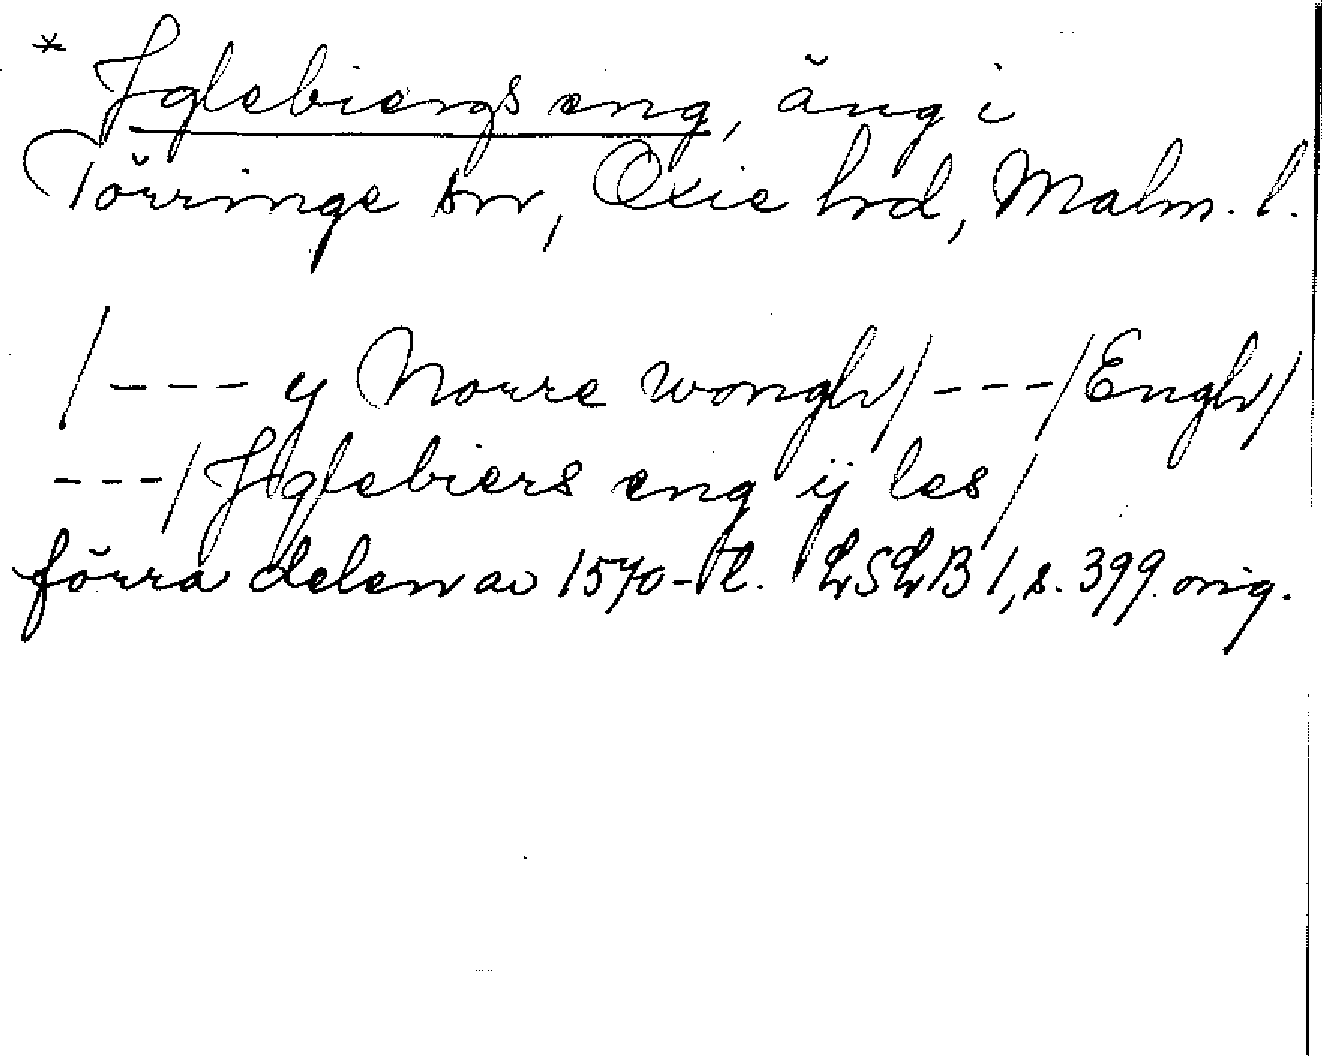 * Jglebiergs eng, äng i
Törringe sn, Oxie hrd, Malm. l.
/--- y Norre wongh/---/Engh/
---/Jglebiers eng ij les/
förra delen av 1570-t. LSLB 1, s. 399. orig.